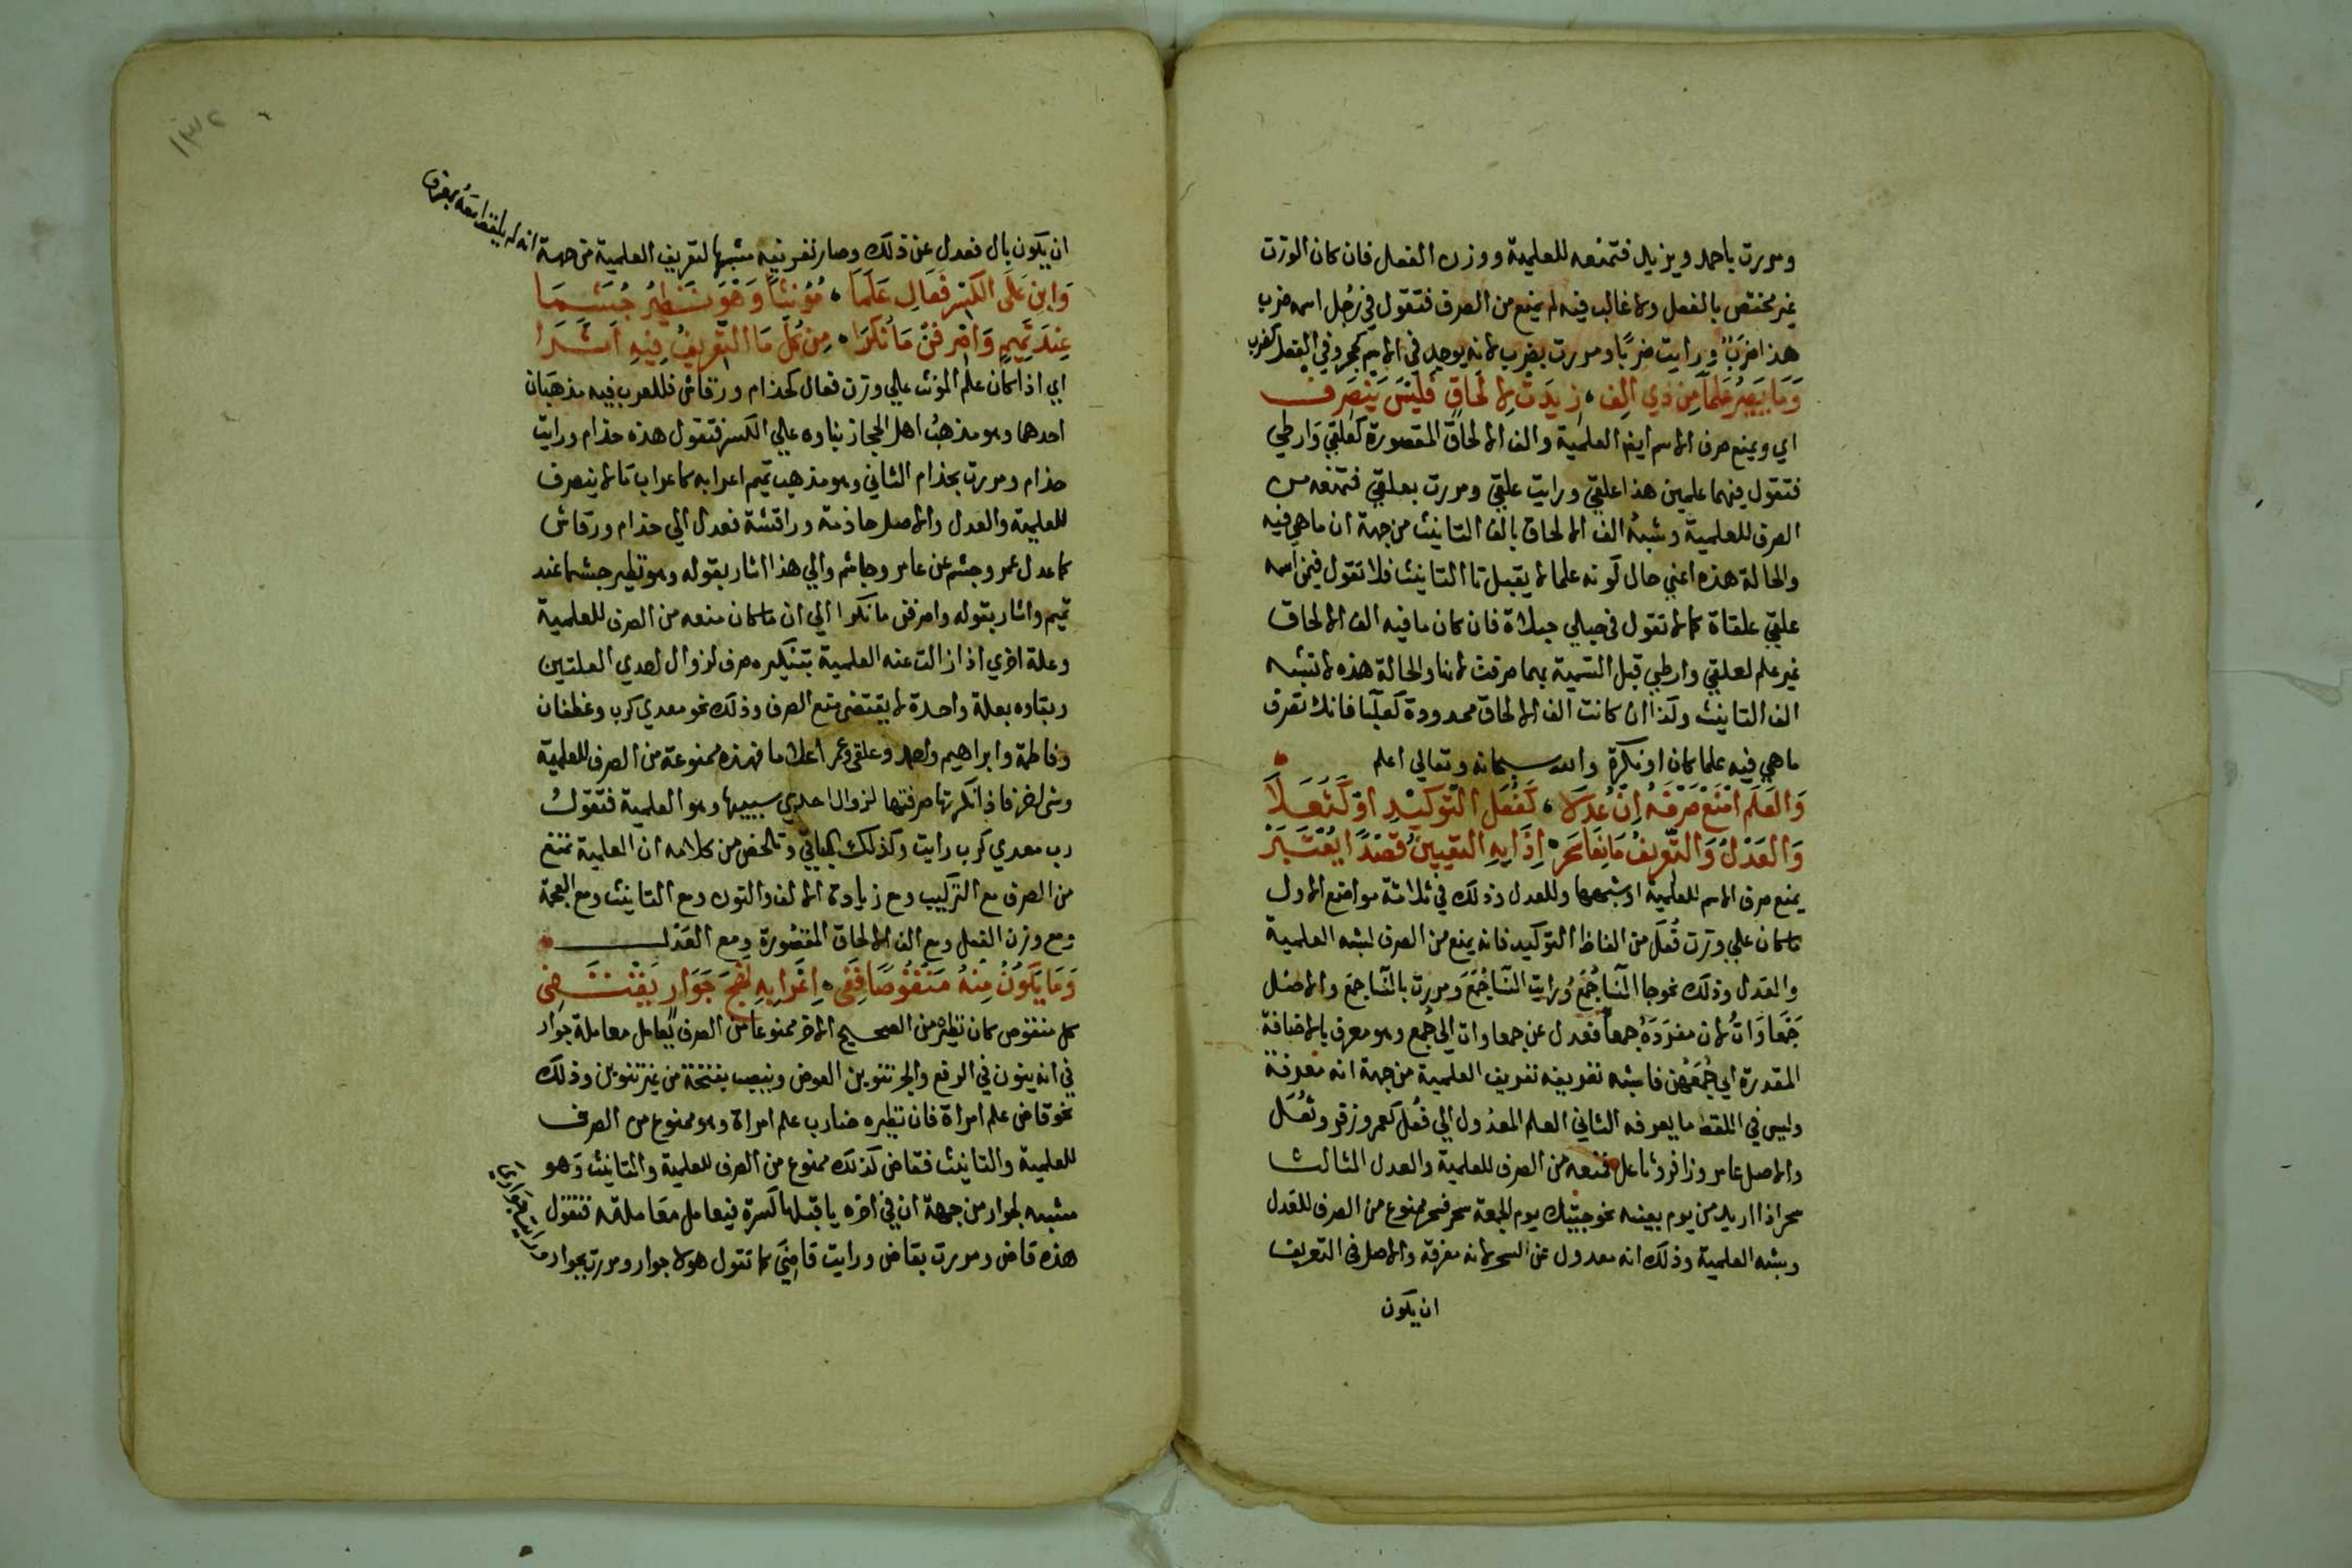 ومررت باحمد ويزيد فتمنعه للعلمية ووزن الفعل فان كان الوزن
غير مختص بالفعل ولا غالب فيه لم يمنع من الصرف فتقول في رجل اسمه ضرب
هذا ضربٌ ورايت ضربًا ومررت بضرب لانه يوجد في الاسم كحجر وفي الفعل كضرب
وَمَا يَصِيرُ عَلَمًا مِن ذِي اَلِف ، زِيدَت لِالحَاقٍ فَلَيسَ يَنصَرِف
اي ويمنع صرف الاسم ايضا العلمية والف الالحاق المقصورة كعلقي وارطي
فتقول فيهما علمين هذا علقي ورايت علقي ومررت بعلقي فتمنعه من
الصرف للعلمية وشبه الف الالحاق بالف التانيث من جهة ان ما هي فيه
والحالة هذه اعني حال كونه علما لا يقبل تا التانيث فلا تقول فيمن اسمه
علقي علقاة كما لا تقول في حبلي حبلاة فان كان ما فيه الف الالحاق
غير علم لعلقي وارطي قبل التسمية بهما صرفت لانها والحالة هذه لا تشبه
الف التانيث وكذا ان كانت الف الالحاق ممدودة كعلبا فانك تصرف
ما هي فيه علما كان او نكرة والله سبحانه وتعالي اعلم
وَالعَلَم امنَع صَرفَهُ اِن عُدِلَا ، كَفُعَلِ التَّوكيدِ اَو كَثُعَلَا
وَالعَدلُ وَالتَّعرِيفُ مَانِعَا سَحَر ، اِذَا بِهِ التعيينُ قَصدًا يُعتَبَر
يمنع صرف الاسم للعلمية او شبهها وللعدل وذلك في ثلاثة مواضع الاول
ما كان علي وزن فُعَل من الفاظ التوكيد فانه يمنع من الصرف لشبه العلمية
والعدل وذلك نحو جا النسا جُمَعُ ورايت النسا جُمَعَ ومررت بالنسا جمع والاصل
جَمعَاوَاتٌ لان مفردَهُ جمعا فعدل عن جمعاوات الي جُمع وهو معرف بالاضافة
المقدرة اي جُمَعُهُن فاشبه تعريفه تعريف العلمية من جهة انه معرفة
وليس في اللفظ ما يعرفه الثاني العلم المعدول الي فُعل كعمر وزفر وثُعَل
والاصل عامر وزافر وثاعل فمنعه من الصرف للعلمية والعدل الثالث
سحر اذا اريد من يوم بعينه نحو جيتك يوم الجمعة سحر فسحر ممنوع من الصرف للعدل
وشبه العلمية وذلك انه معدول عن السحر لانه معرفة والاصل في التعريف
ان يكون
١٣٢
ان يكون بال فعدل عن ذلك وصار تعريفه مشبها لتعريف العلمية من جهة انه لم يلفظ معه بمعرف
وَابنِ عَلَى الكَسرِ فَعَالِ عَلَمَا ، مُؤَنثًا وَهوَ نَظِيرُ جُشَمَا
عِندَ تَمِيمٍ وَاصرِفَن مَا نُكِّرَا ، مِن كُلِّ مَا التَّعرِيفُ فِيهِ اَثَّرَا
اي اذا كان علم المونث علي وزن فعال كحذام ورقاش فللعرب فيه مذهبان
احدهما وهو مذهب اهل الحجاز بناوه علي الكسر فتقول هذه حذام ورايت
حذام ومررت بحذام الثاني وهو مذهب تميم اعرابه كاعراب ما لا ينصرف
للعلمية والعدل والاصل حاذمة وراقشة فعدل الي حذام ورقاش
كما عدل عمر وجشم عن عامر وجاشم والي هذا اشار بقوله وهو نظير جشما عند
تميم واشار بقوله واصرفن ما نكرا الي ان ما كان منعه من الصرف للعلمية
وعلة اخري اذا زالت عنه العلمية بتنكيره صرف لزوال احدي العلتين
وبقاوه بعلة واحدة لا يقتضي منع الصرف وذلك نحو معدي كرب وغطفان
وفاطمة وابراهيم واحمد وعلقي وعمر اعلاما فهذه ممنوعة من الصرف للعلمية
وشي اخر فاذا نكرتها صرفتها لزوال احدي سببيها وهو العلمية فتقول
رب معدي كرب رايت وكذلك الباقي وتلخص من كلامه ان العلمية تمنع
من الصرف مع التركيب ومع زيادة الالف والنون ومع التانيث ومع العجمة
ومع وزن الفعل ومع الف الالحاق المقصورة ومع العَدل
وَمَا يَكُونُ مِنهُ مَنقُوصًا فَفِي ، اِعرَابِهِ نَهجَ جَوَارٍ يَقتَفِي
كل منقوص كان نظيره من الصحيح الاخر ممنوعا من الصرف يُعامل معاملة جوار
في انه ينون في الرفع والجر تنوين العوض وينصب بفتحة من غير تنوين وذلك
نحو قاض علم امراة فان نظيره ضارب علم امراة وهو ممنوع من الصرف
للعلمية والتانيث فقاض كذلك ممنوع من الصرف للعلمية والتانيث وهو
مشبه لجوار من جهة ان في اخره يا قبلها كسرة فيعامل معاملته فتقول
هذه قاض ومررت بقاض ورايت قاضيَ كما تقول هولا جوار ومررت بجوار ورايت جواري